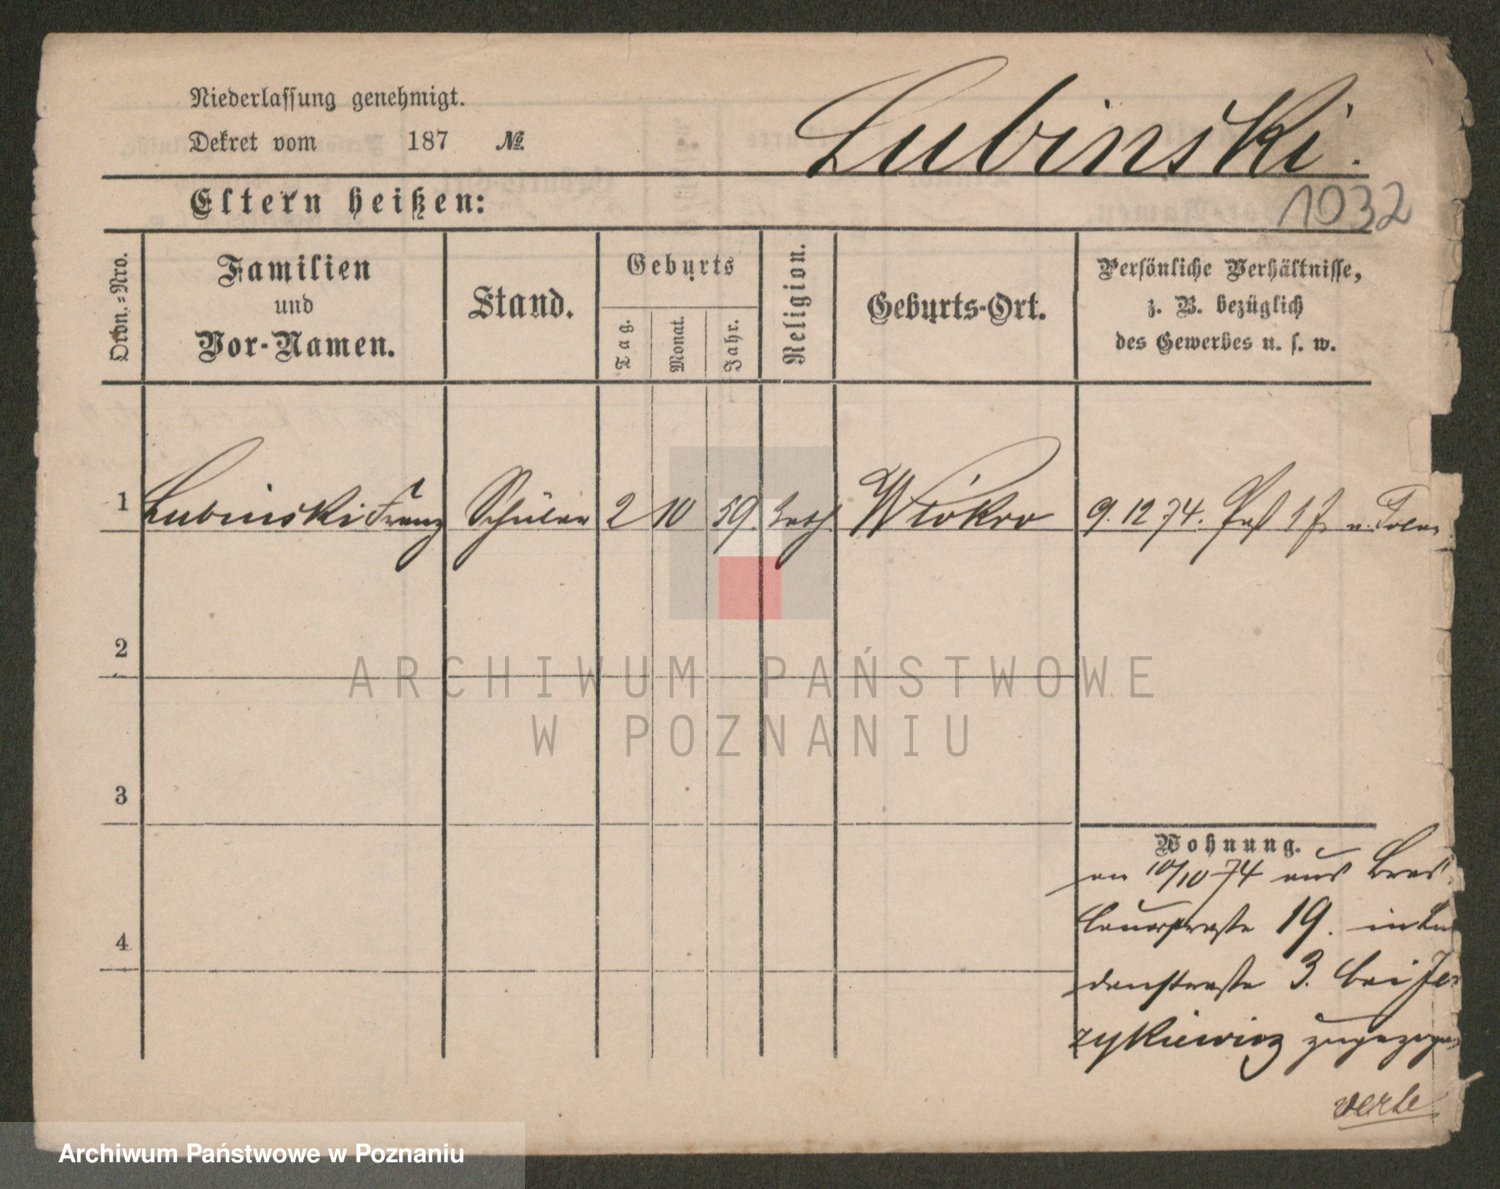 Niederlassung genehmigt.
Dekret vom 187 №
Lubinski.
Eltern heißen:
1032
Ordn.-Nro.
Familien
und
Vor-Namen.
Stand.
Geburts
Tag.
Monat.
Jahr.
Religion.
Geburts-Ort.
Persönliche Verhältnisse,
z. B. bezüglich
des Gewerbes u. s. w.
1 Lubinski Franz Schüler 2 10 59. kath. 9. 12 74. Paß 1 J.
2
ARCHIWUM PAŃSTWOWE
W POZNANIU
3
4
Wohnung.
10/10 74 aus Bres-
lauerstraße 19. in
denstraße 3. bei Je
zykiewicz zugezogen
Archiwum Państwowe w Poznaniu